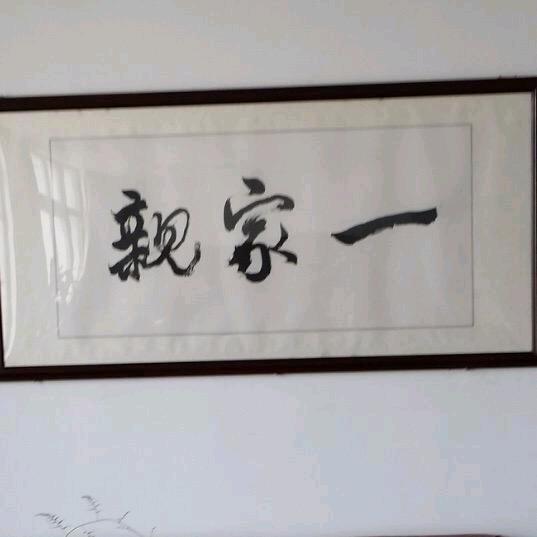 一家親